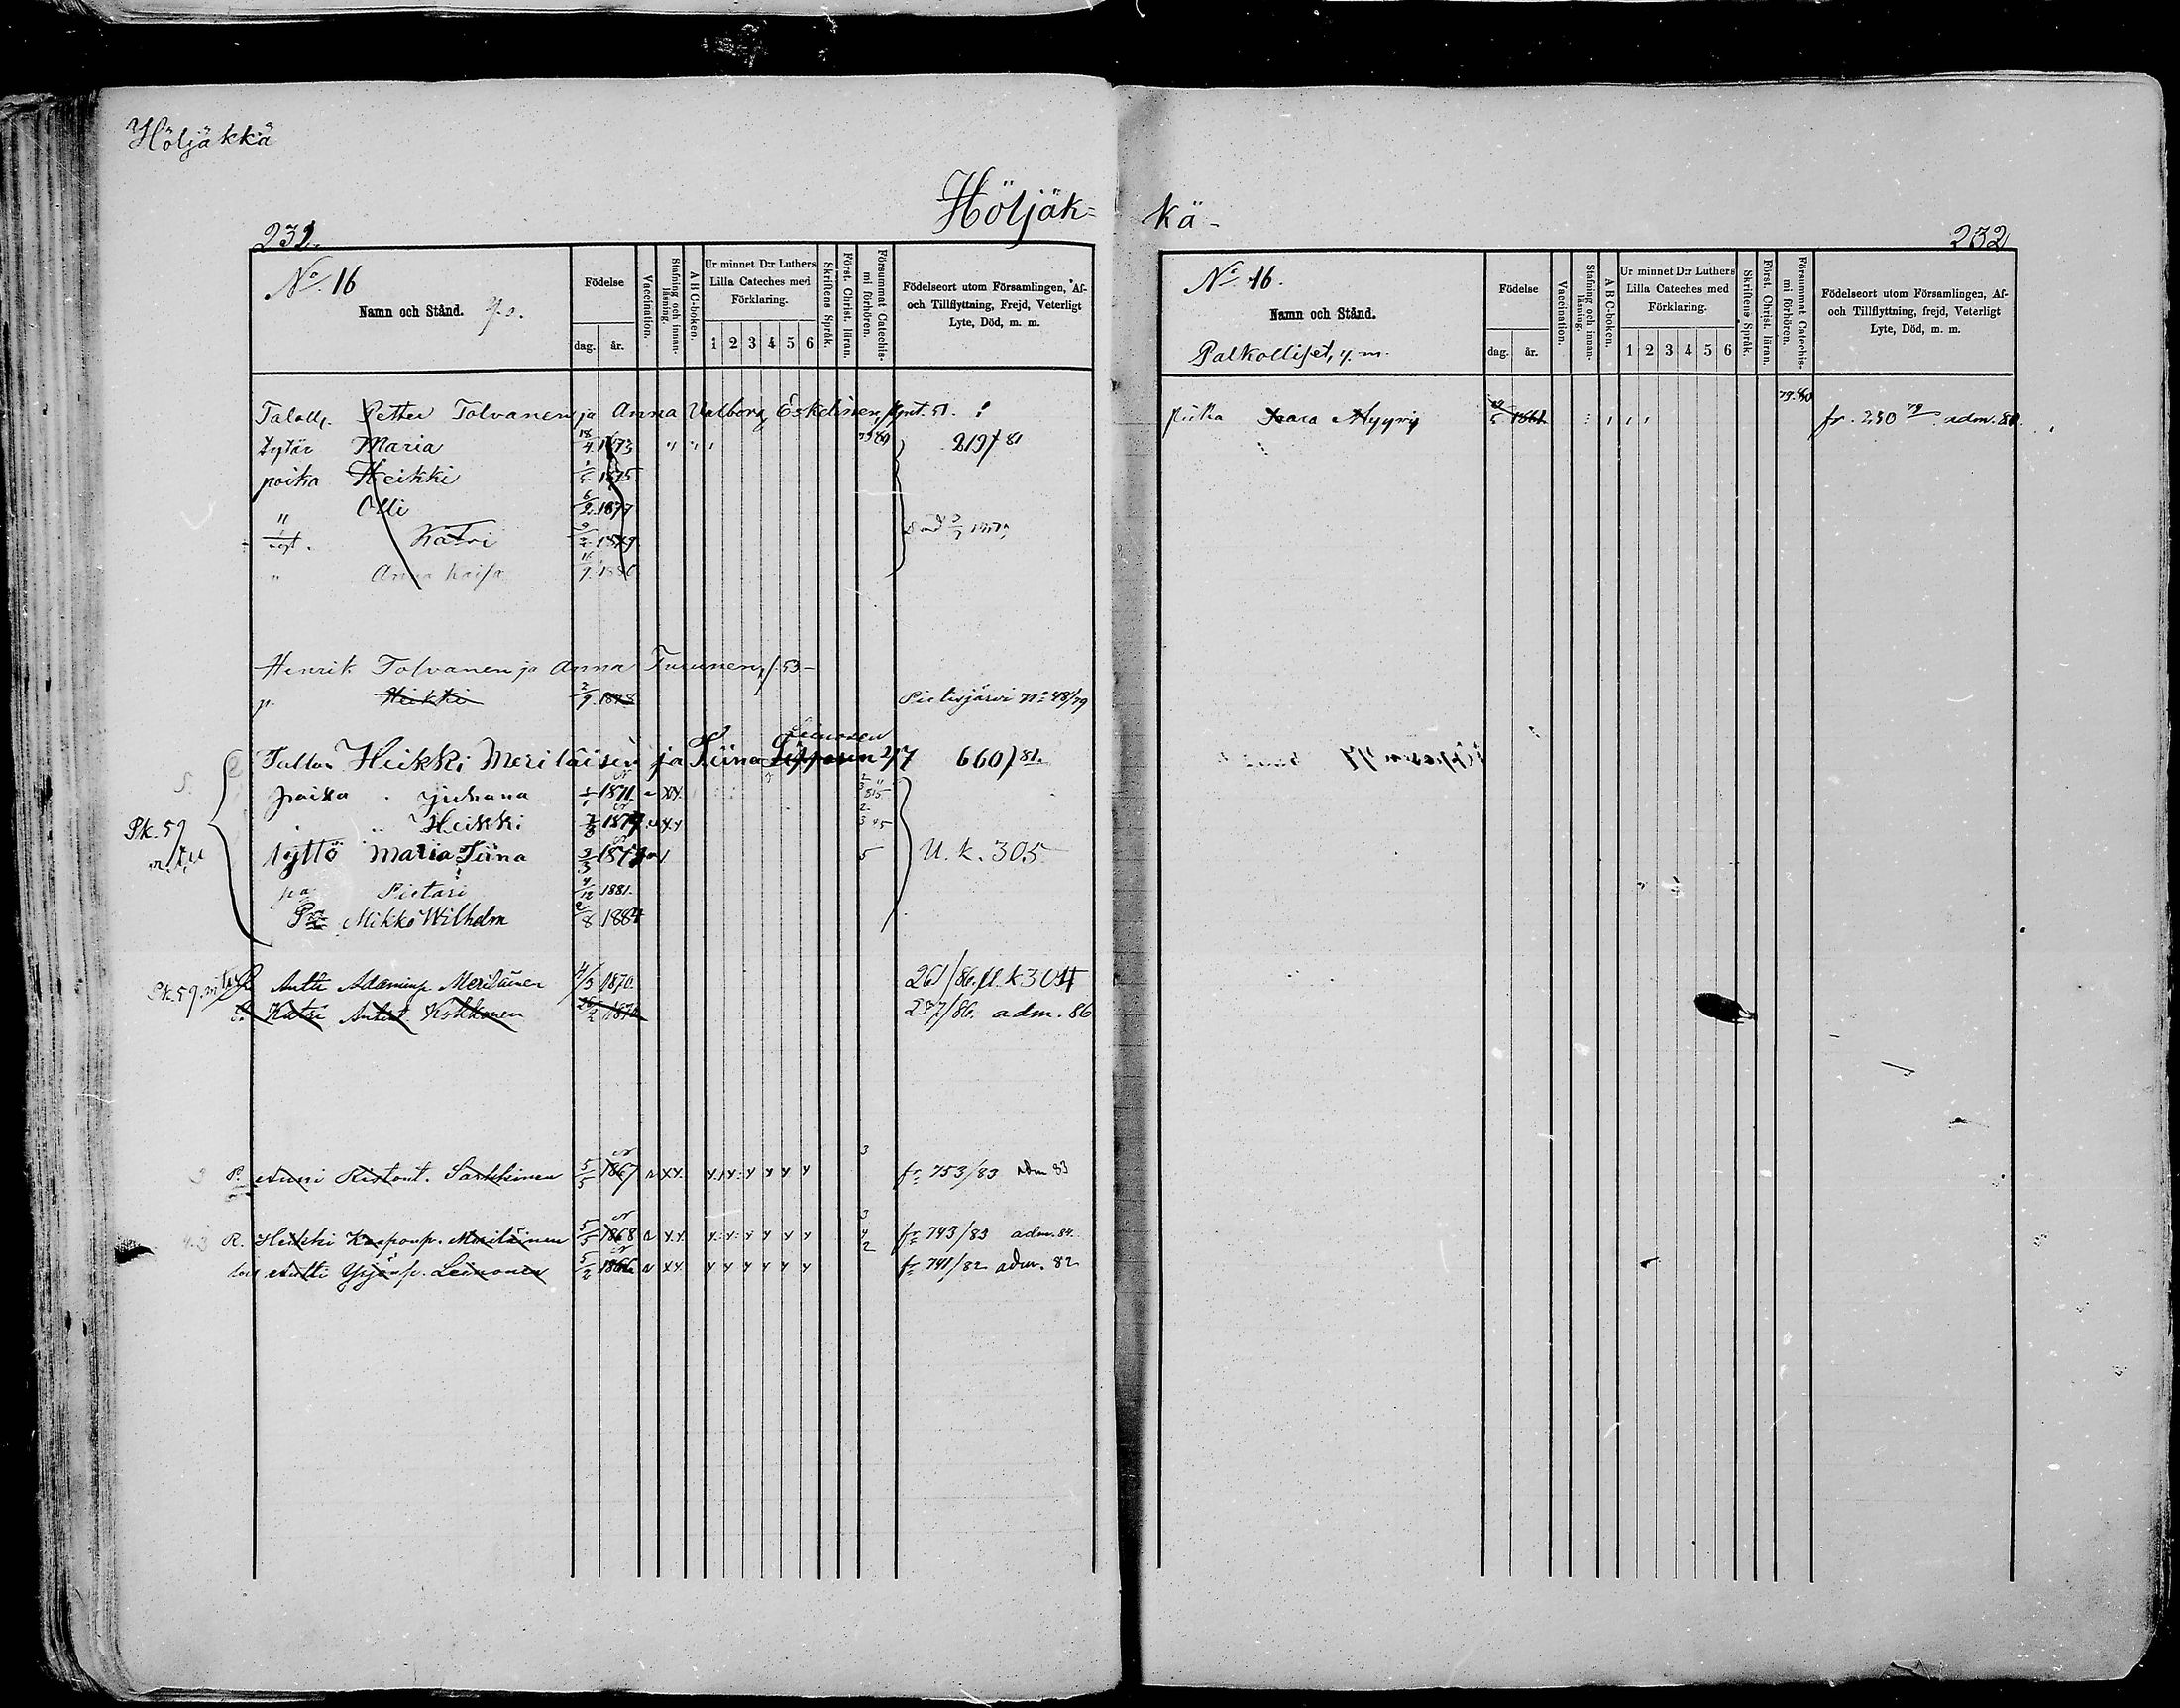 Höljäkkä
Höljäk=
231.
No. 16
Namn och Stånd.
Födelse
dag. år.
Vaccination.
Stafning och innanläsning.
A B C-boken.
Ur minnet D:r Luthers Lilla Cateches med Förklaring.
1 2 3 4 5 6
Skriftens Språk.
Först. Christ. läran.
Försummat Catechismi förhören.
Födelseort utom Församlingen, Af- och Tillflyttning, Frejd, Veterligt Lyte, Död, m. m.
Petter Tolvanen ja Anna Valborg Eskelinen 51.
tytär Maria 18/4 1873 79 80 219/81
poika Heikki 1875
" Olli 6/2 1877
Katri 1879
" Anna Kaisa 1880
Henrik Tolvanen ja Anna Turunen, 53-
p. Heikki 2/9 1878 Pielisjärvi No 48/79
Leinonen
Heikki Meriläisen ja Tiina Lipponen 217 660/81.
Pk. 59
poika Juhana 1871. xx
" Heikki xx
tyttö Maria Tiina 5 U. k. 305
Pietari 4/12 1881.
Mikko Wilhelm 2/8 1884
Pk. 59. Antti Adaminp. Meriläinen 1870. 261/86.
Katri Antint. Kokkonen 257/86. adm. 86
3 P. Anni Ristont. Sarkkinen 5/5 1867 xx fr 753/83 adm 83
R. Heikki Kaaponp. Meriläinen 5/5 1868 xx fr 743/83 adm. 84.
Antti Yrjönp. Leinonen 5/2 1866 xx fr 741/82 adm. 82
kä-
232
No. 16.
Namn och Stånd.
Palkolliset, y. m.
Födelse
dag. år.
Vaccination.
Stafning och innanläsning.
A B C-boken.
Ur minnet D:r Luthers Lilla Cateches med Förklaring.
1 2 3 4 5 6
Skriftens Språk.
Först. Christ. läran.
Försummat Catechismi förhören.
Födelseort utom Församlingen, Af- och Tillflyttning, frejd, Veterligt Lyte, Död, m. m.
piika Kaara Myyry 1861 79.80 fr. 230 79 adm. 80.